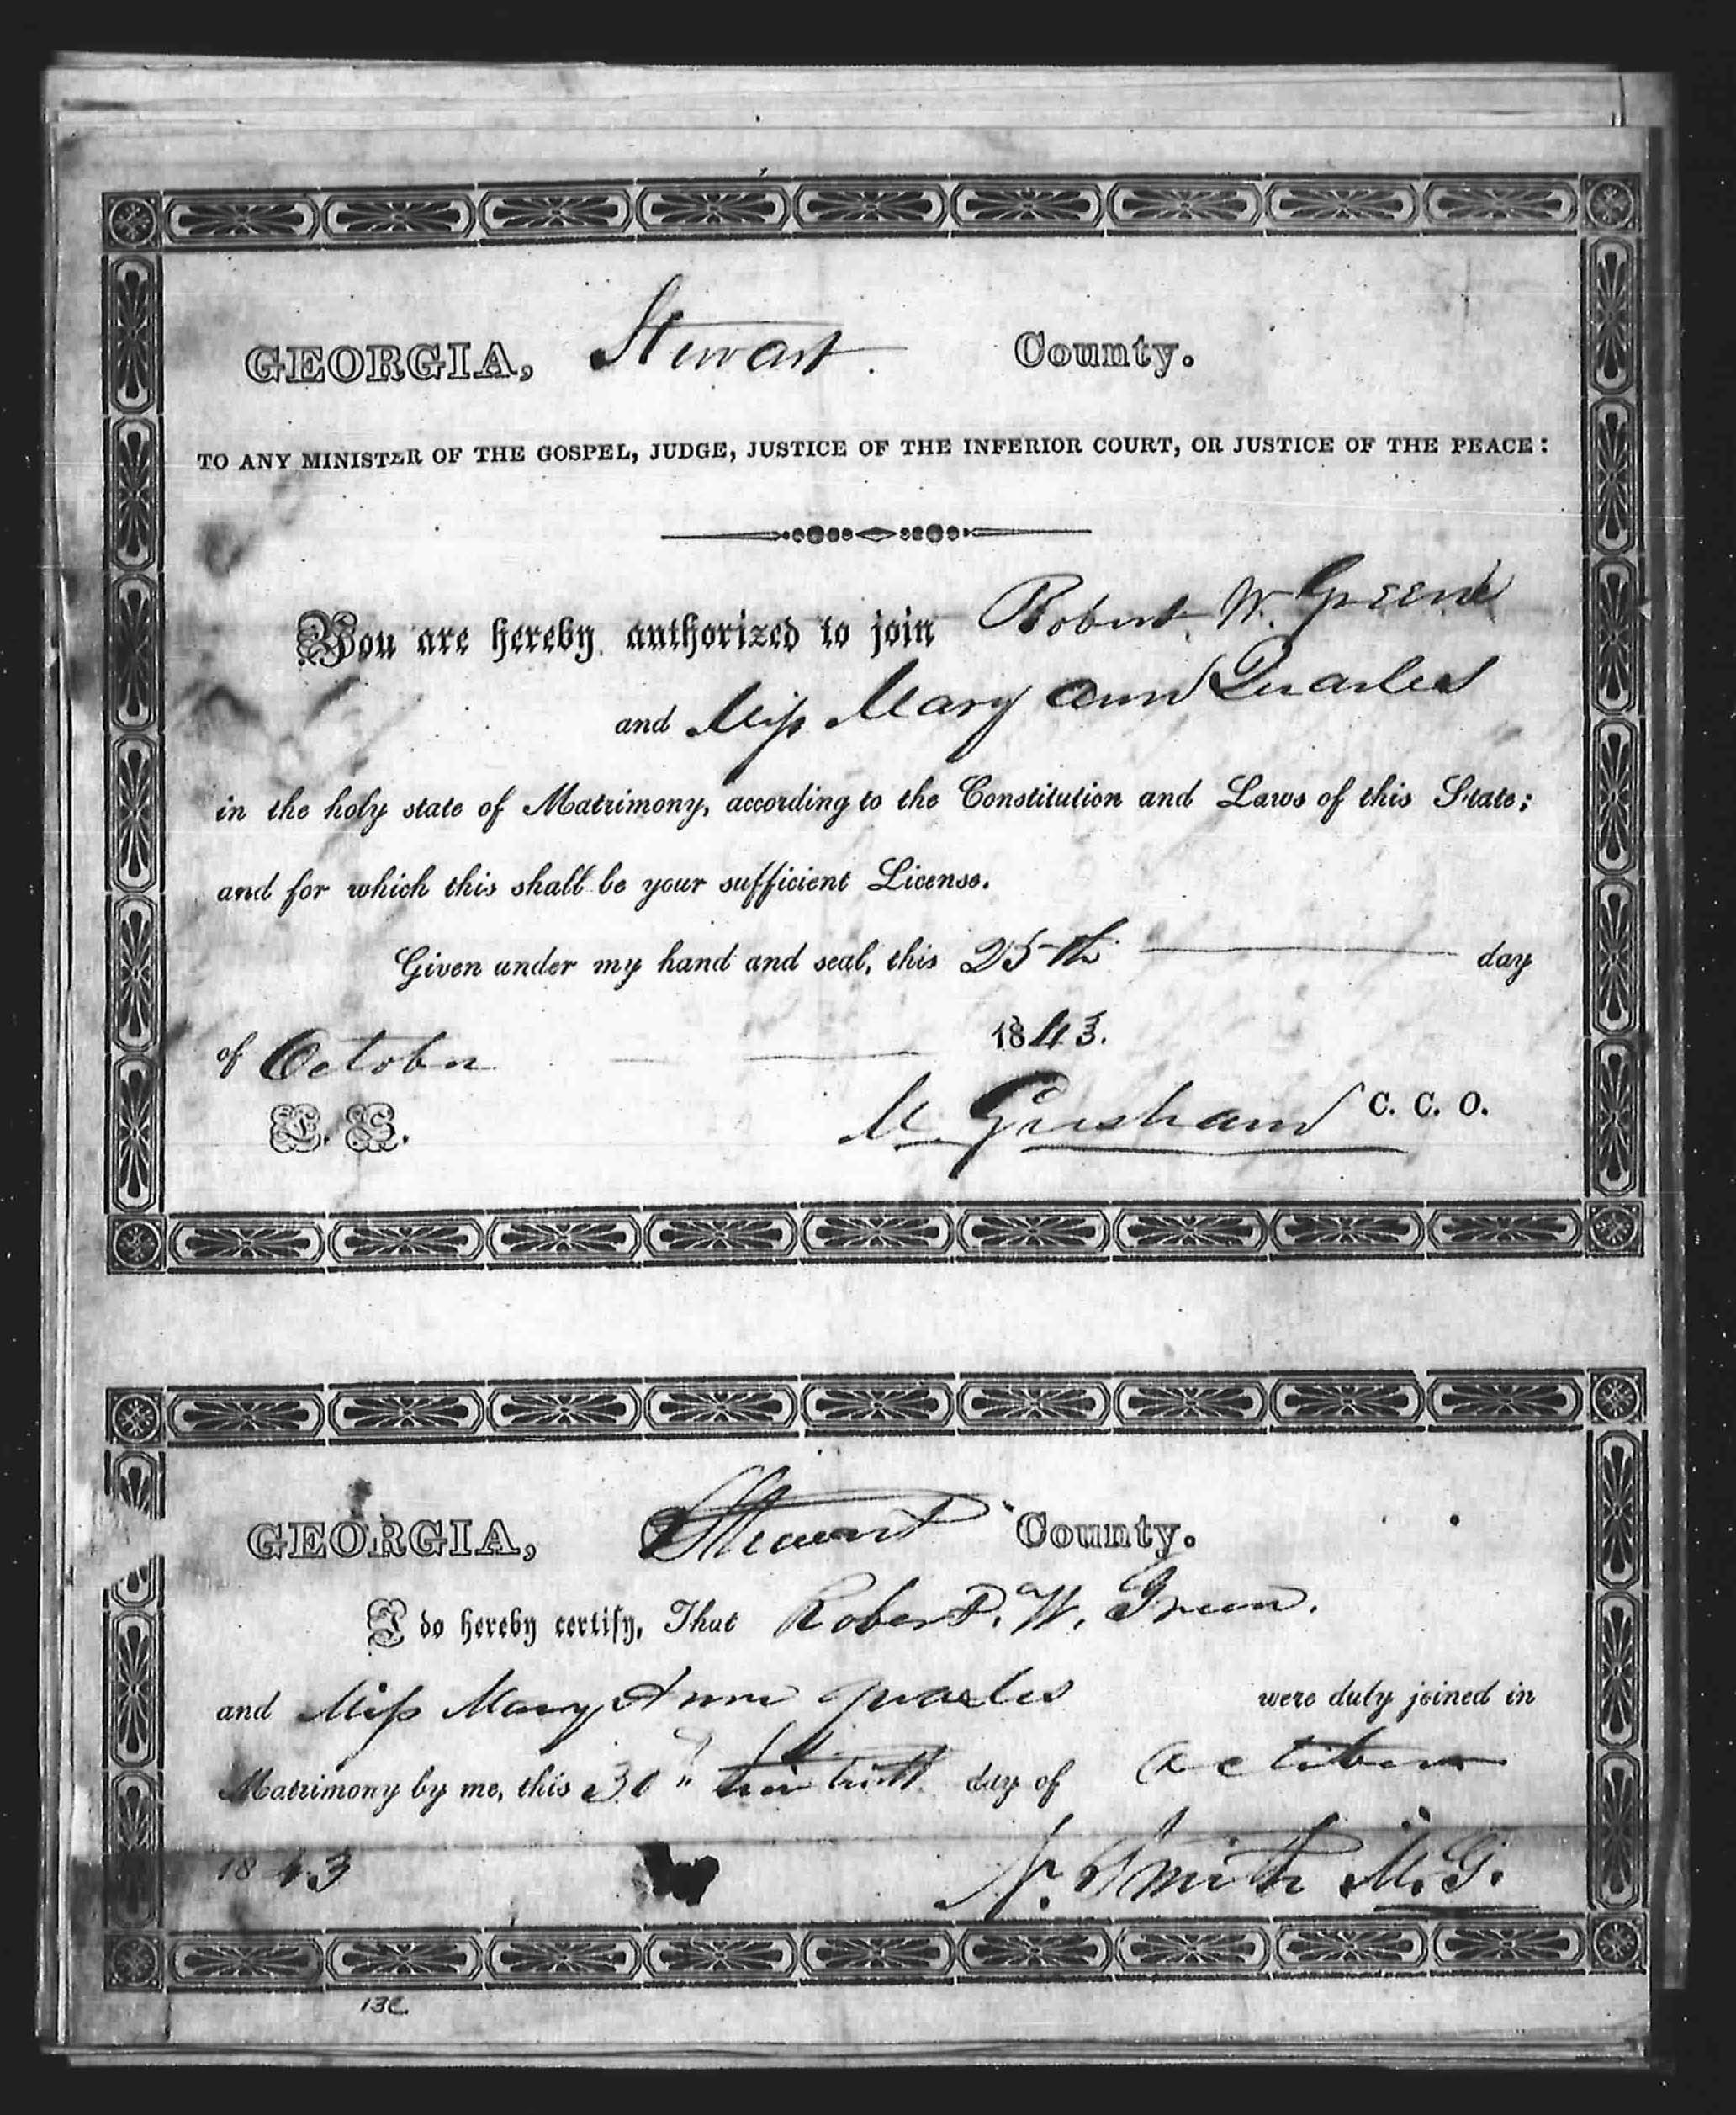 GEORGIA, Stewart County.
TO ANY MINISTER OF THE GOSPEL, JUDGE, JUSTICE OF THE INFERIOR COURT, OR JUSTICE OF THE PEACE:
You are hereby authorized to join Robert W. Greene
and Miss Mary Ann Quarles
in the holy state of Matrimony, according to the Constitution and Laws of this State;
and for which this shall be your sufficient License.
Given under my hand and seal, this 25th day
of October 1843.
L. S. M. Gresham C. C. O.
GEORGIA, Stewart County.
I do hereby certify, That Robert. W. Green.
and Miss Mary Ann quarles were duly joined in
Matrimony by me, this 30th day of October
1843 Smith M.G.